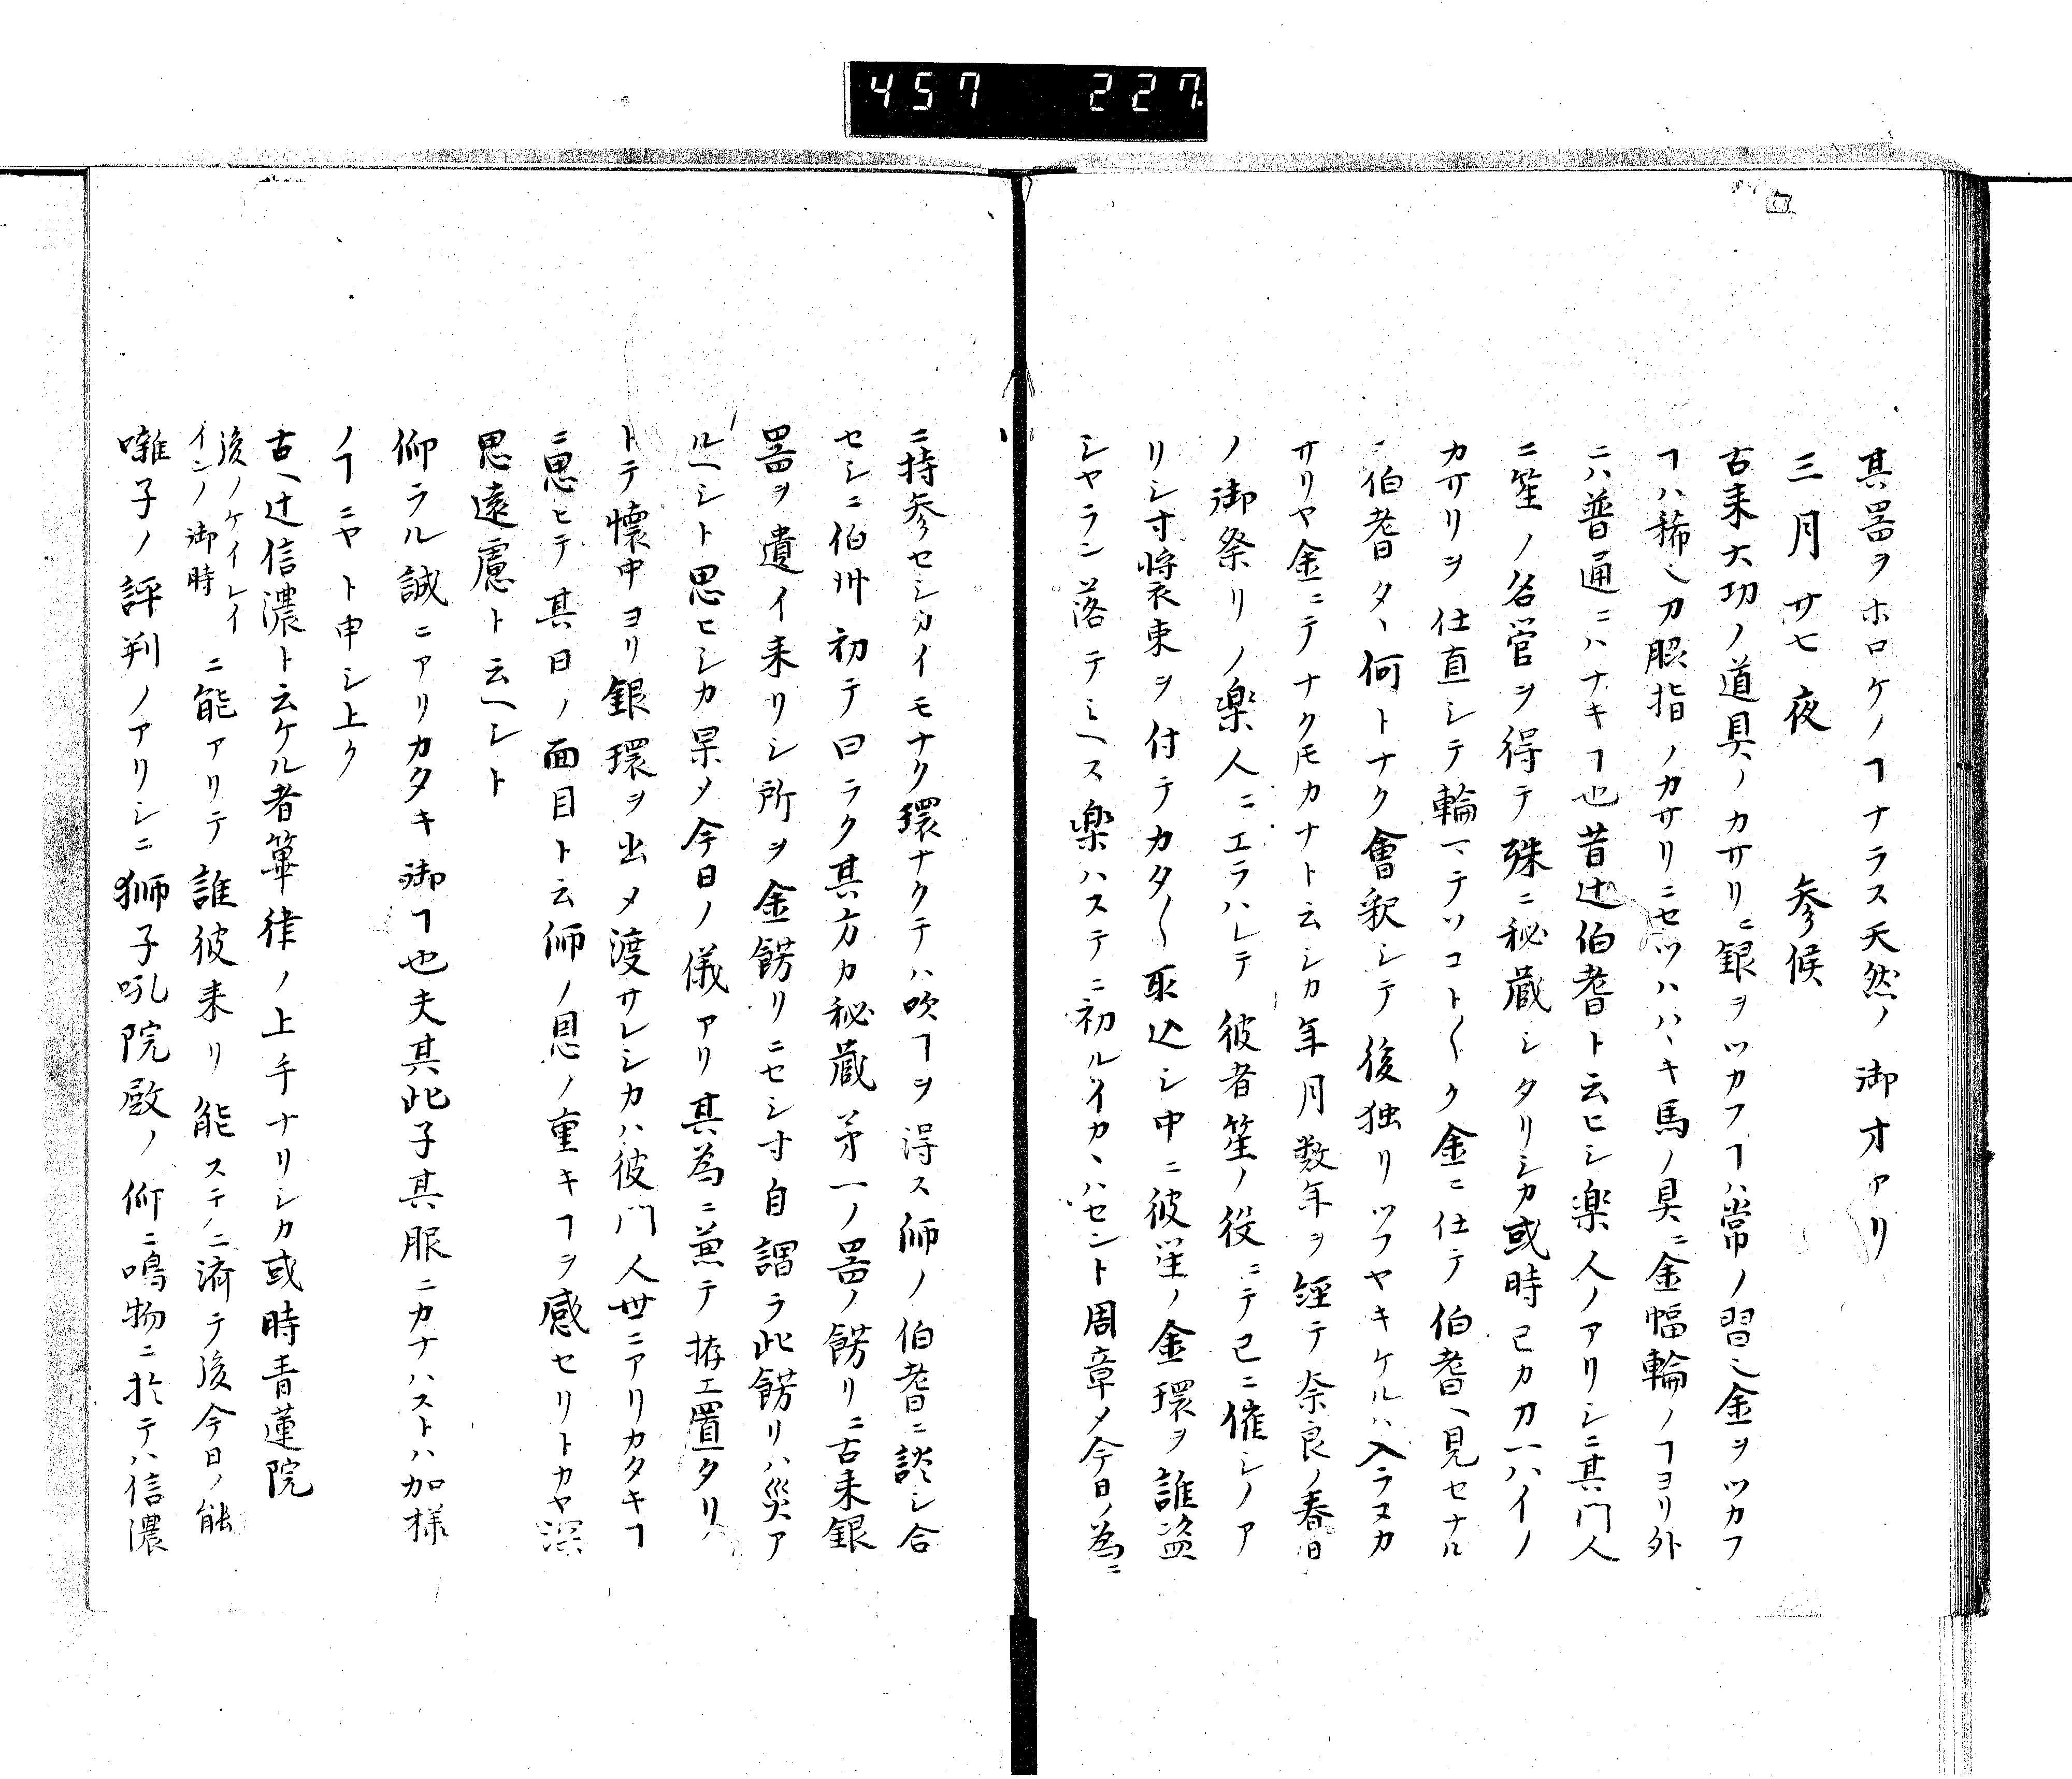 457 227
其器ヲホロケノヿナラス天然ノ御才アリ
三月廿七夜 参候
古来大功ノ道具ノカサリニ銀ヲツカフヿハ常ノ習也金ヲツカフ
ヿハ稀也刀脇指ノカサリニセツハハヽキ馬ノ具ニ金幅輪ノヿヨリ外
ニハ普通ニハナキヿ也昔辻伯耆ト云ヒシ楽人ノアリシニ其門人
ニ笙ノ名管ヲ得テ殊ニ秘蔵シタリシカ或時己カ力一ハイノ
カサリヲ仕直シテ輪マテツコト〱ク金ニ仕テ伯耆ヘ見セケル
ニ伯耆タヽ何トナク會釈シテ後独リツフヤキケルハ入ラヌカ
サリヤ金ニテナクモカナト云シカ年月数年ヲ経テ奈良ノ春日
ノ御祭リノ楽人ニエラハレテ彼者笙ノ役ニテ已ニ催シノア
リシ寸装束ヲ付テカタ〱取込シ中ニ彼笙ノ金環ヲ誰盗
シヤラン落テミヘス楽ハステニ初ルイカヽハセント周章メ今日ノ為ニ
ニ持参セシカイモナク環ナクテハ吹ヿヲ得ス師ノ伯耆ニ談シ合
セシニ伯州初テ曰ラク其方カ秘蔵第一ノ器ノ餝リニ古来銀
器ヲ遣イ来リシ所ヲ金餝リニセシ寸自謂ラ此餝リハ災ア
ルヘシト思ヒシカ果メ今日ノ儀アリ其為ニ兼テ拵エ置タリ
トテ懐中ヨリ銀環ヲ出メ渡サレシカハ彼門人世ニアリカタキヿ
ニ思ヒテ其日ノ面目ト云師ノ恩ノ重キヿヲ感セリトカヤ深
思遠慮ト云ヘシト
仰ラル誠ニアリカタキ御ヿ也夫其此子其服ニカナハストハ加様
ノヿニヤト申シ上ク
古ヘ辻信濃ト云ケル者篳律ノ上手ナリシカ或時青蓮院
後ノケイレイ
インノ御時 ニ能アリテ誰彼来リ能ステニ済テ後今日ノ能
囃子ノ評判ノアリシニ獅子吼院殿ノ仰ニ鳴物ニ於テハ信濃